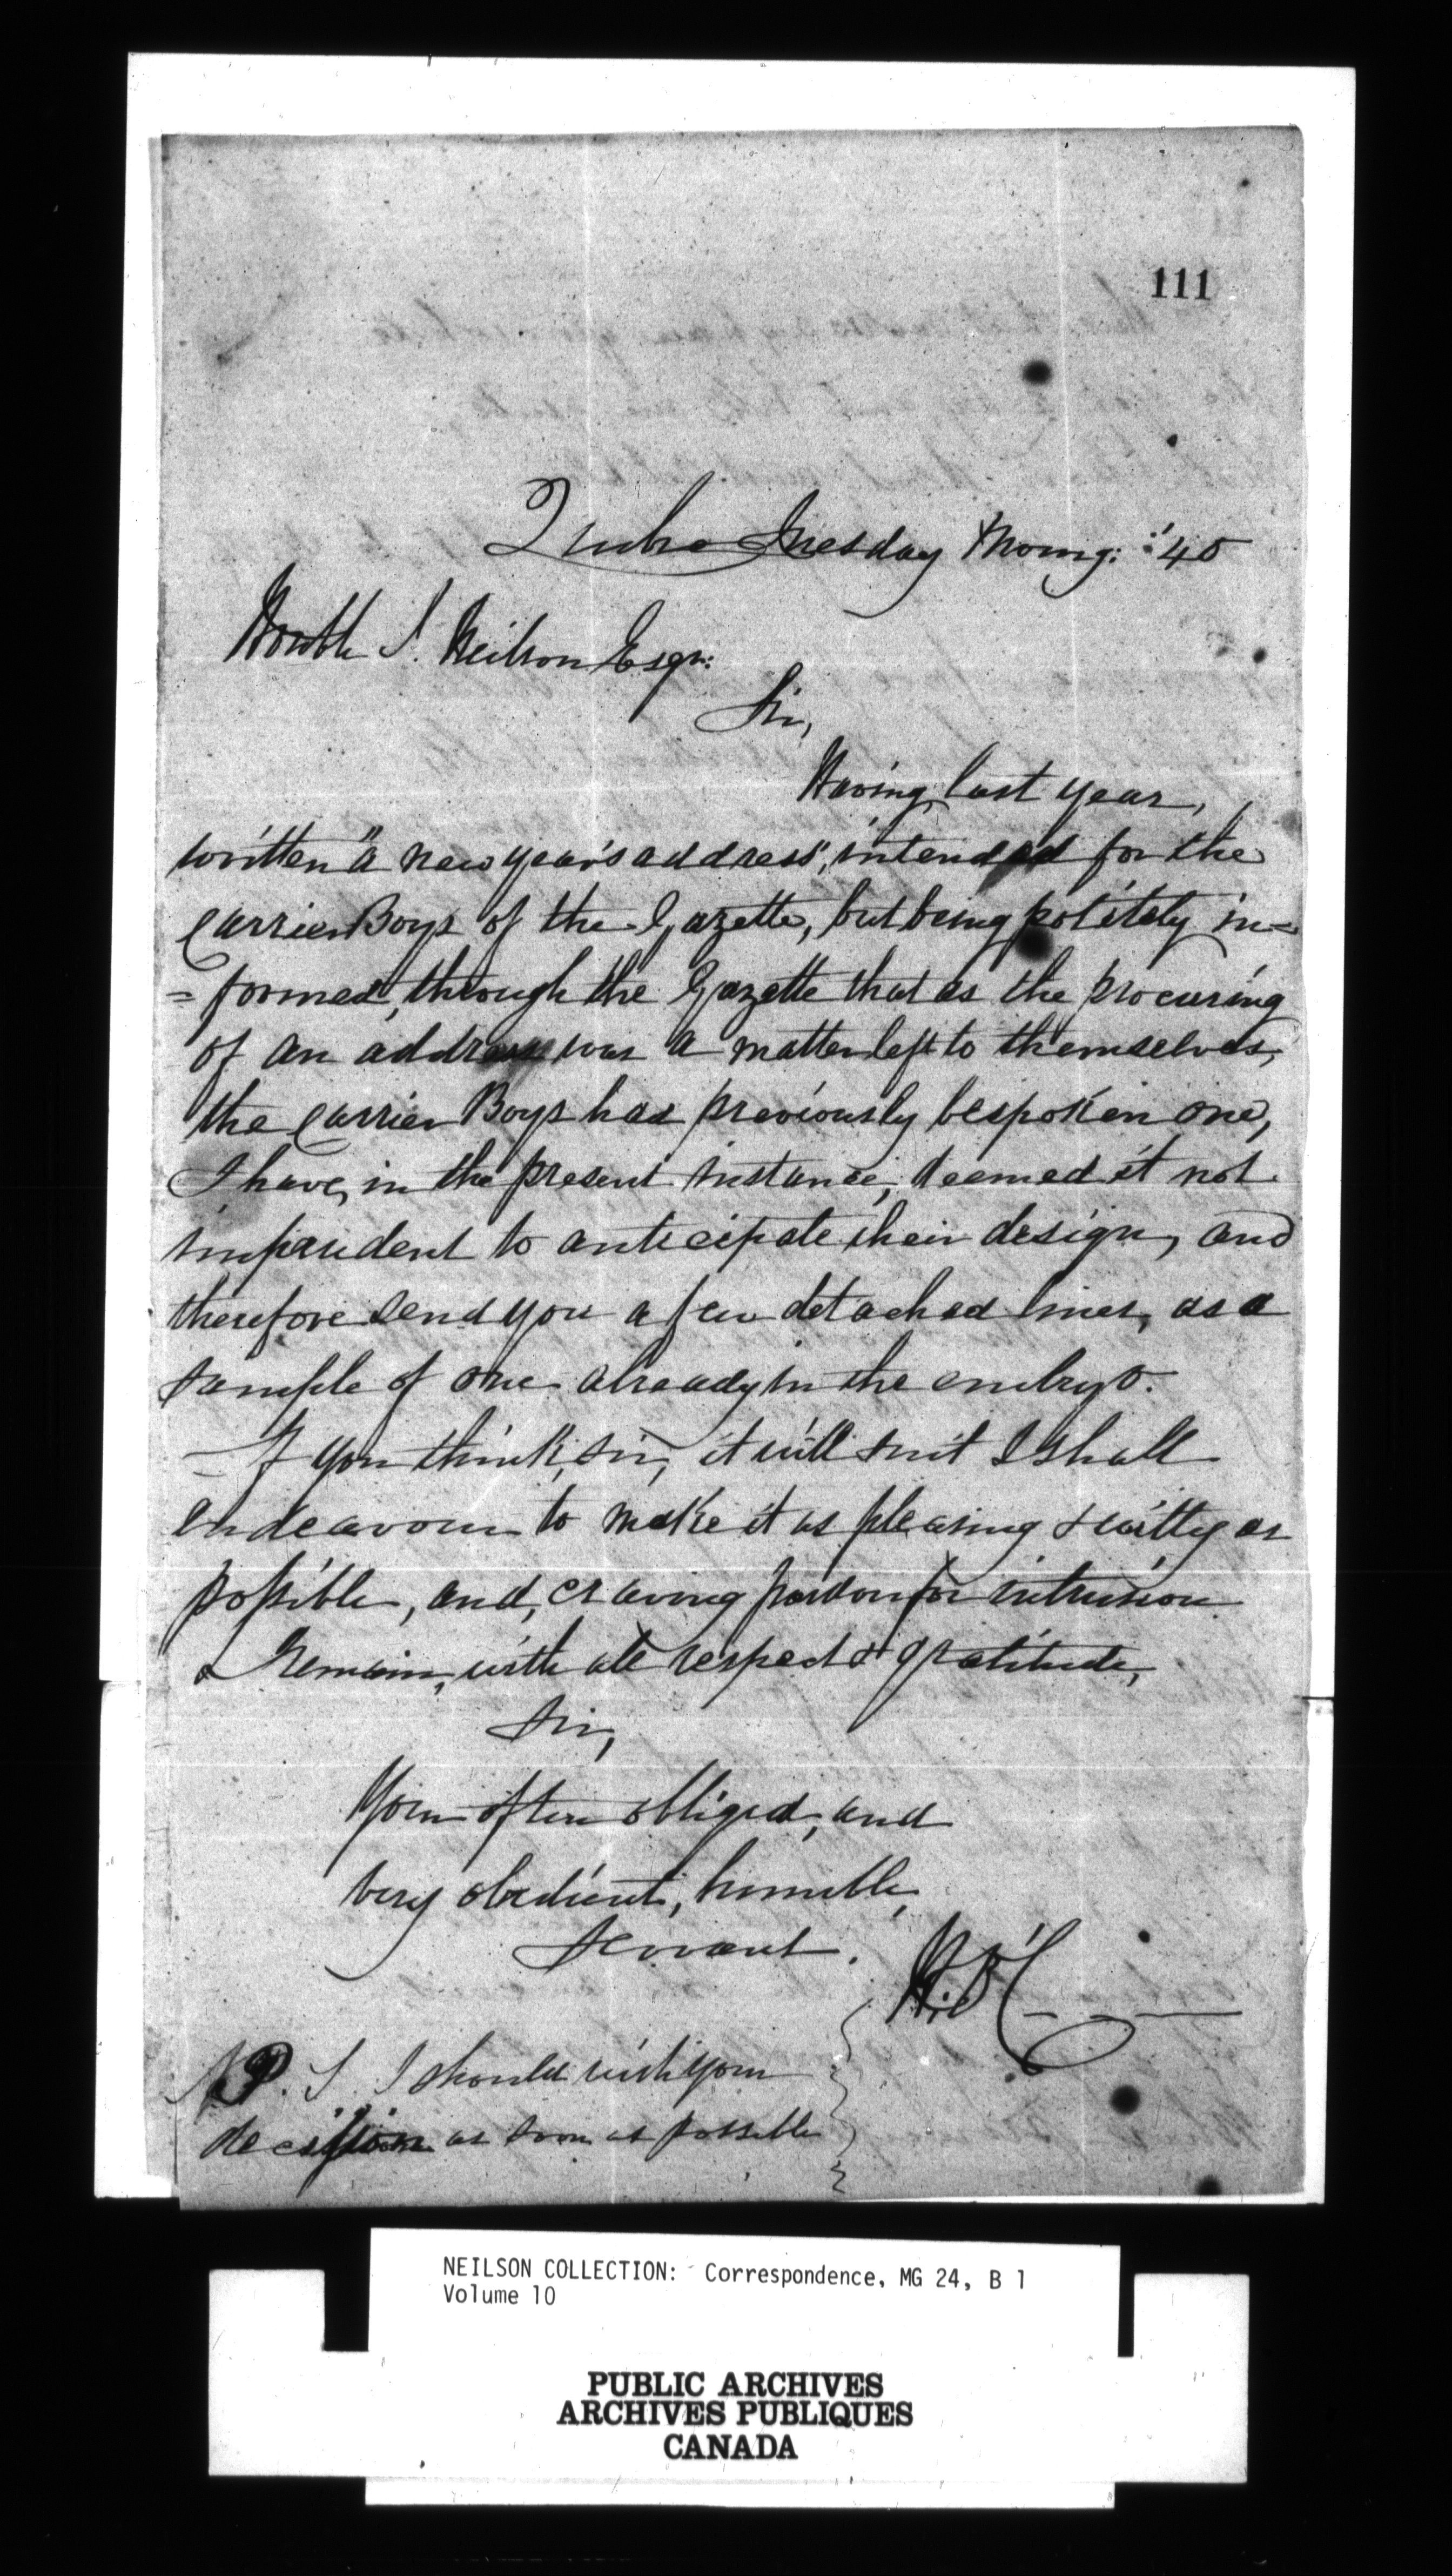 111
Quebec Tuesday Morng: '40
Honble J. Neilson Esqr:
Sir,
Having last year,
written "a new year's address", intended for the
Carrier Boys of the Gazette, but being politely in=
=formed, through the Gazette that as the procuring
of an address was a matter left to themselves,
the Carrier Boys had previously bespoken one,
I have, in the present instance, deemed it not
imprudent to anticipate their design, and
therefore send you a few detached lines, as a
sample of one already in the embryo.
— If you think, sir, it will suit I shall
endeavour to make it as pleasing & witty as
possible, and, craving pardon for intrusion
I Remain, with all respect & gratitude,
Sir,
Your often obliged, and
very obedient, humble,
Servant.
P. S. I should wish your
decission as soon as possible
NEILSON COLLECTION: Correspondence, MG 24, B 1
Volume 10
PUBLIC ARCHIVES
ARCHIVES PUBLIQUES
CANADA